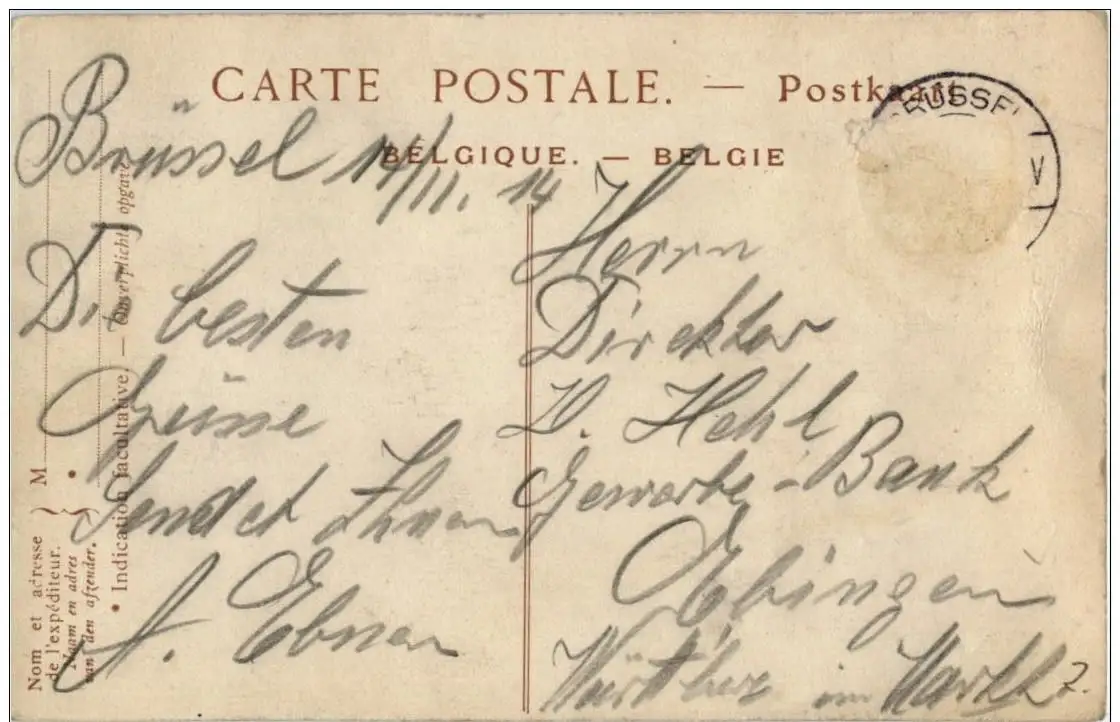 CARTE POSTALE. — Postkaart
BELGIQUE. — BELGIE
BRÜSSEL
V
Brüssel 14/11. 14
Die besten
Grüsse
sendet Ihnen
A. Ebner
Herrn
Direktor
Hehl
Gewerbe-Bank
Ebingen
Nom et adresse
de l'expéditeur.
Naam en adres
van den afzender.
} M
• Indication facultative. — Onverplichte opgave •